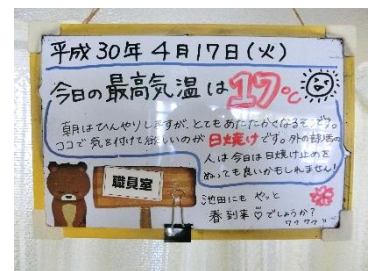 平成30年4月17日(火)
今日の最高気温は17℃
朝はひんやりしますが、とてもあたたかくなるそうです。
ココで気を付けて欲しいのが日焼けです。外の部活の
人は今日は日焼け止めを
ぬっても良いかもしれません!
職員室
池田にもやっと
春到来♡でしょうか?
ワクワク